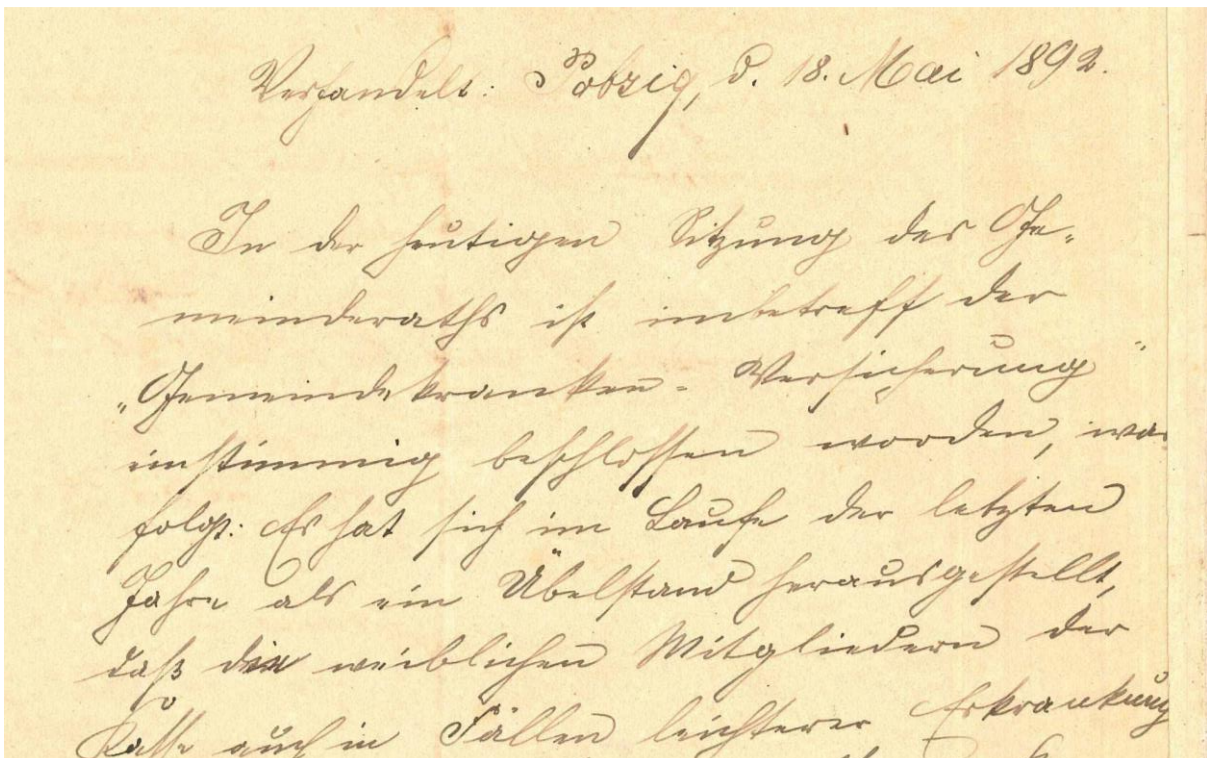 Verhandelt: Pobzig, d. 18. Mai 1892.
In der heutigen Sitzung des Ge-
meinderaths ist inbetreff der
„Gemeindekranken-Versicherung"
einstimmig beschlossen worden, was
folgt: Es hat sich im Laufe der letzten
Jahre als ein Übelstand herausgestellt,
daß den weiblichen Mitgliedern der
Kasse auch in Fällen leichterer Erkrankung